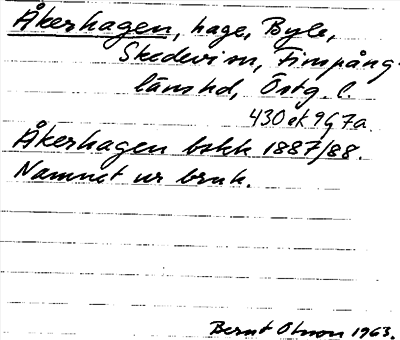 Åkerhagen, hage, Byle,
Skedevi sn, Finspång-
läns hd, Östg. l.
430 ek 9G7a.
Åkerhagen bskk 1887/88.
Namnet ur bruk.
Bernt Olsson 1963.